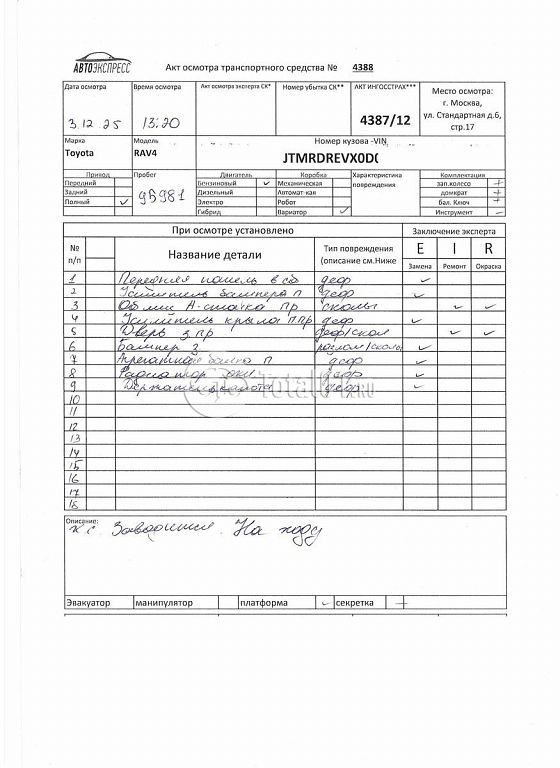 АВТОЭКСПРЕСС
Акт осмотра транспортного средства № 4388
Дата осмотра Время осмотра Акт осмотра эксперта СК* Номер убытка СК** АКТ ИНГОССТРАХ*** Место осмотра:
г. Москва,
ул. Стандартная д.6,
стр.17
3.12.25 13:20 4387/12
Марка Модель Номер кузова -VIN
Toyota RAV4 JTMRDREVX0D
Привод Пробег Двигатель Коробка Характеристика повреждения Комплектация
Передний 95981 Бензиновый ✓ Механическая зап.колесо +
Задний Дизельный Автомат-кая домкрат +
Полный ✓ Электро Робот бал. Ключ +
Гибрид Вариатор ✓ Инструмент –
При осмотре установлено Заключение эксперта
№ п/п Название детали Тип повреждения (описание см.Ниже E I R
Замена Ремонт Окраска
1 Передняя панель в сб деф ✓
2 Усилитель бампера п деф ✓
3 Обл А-стойка пр сколы ✓ ✓
4 Усилитель крыла п.пр деф ✓
5 Дверь з.пр деф/скол ✓ ✓
6 Бампер з разлом/сколы ✓
7 балка п деф ✓
8 Радиатор деф ✓
9 Держатель капота деф ✓
10
11
12
13
14
15
16
17
18
Описание:
к с. Заводится. На ходу
Эвакуатор манипулятор платформа ✓ секретка +
Total .RU